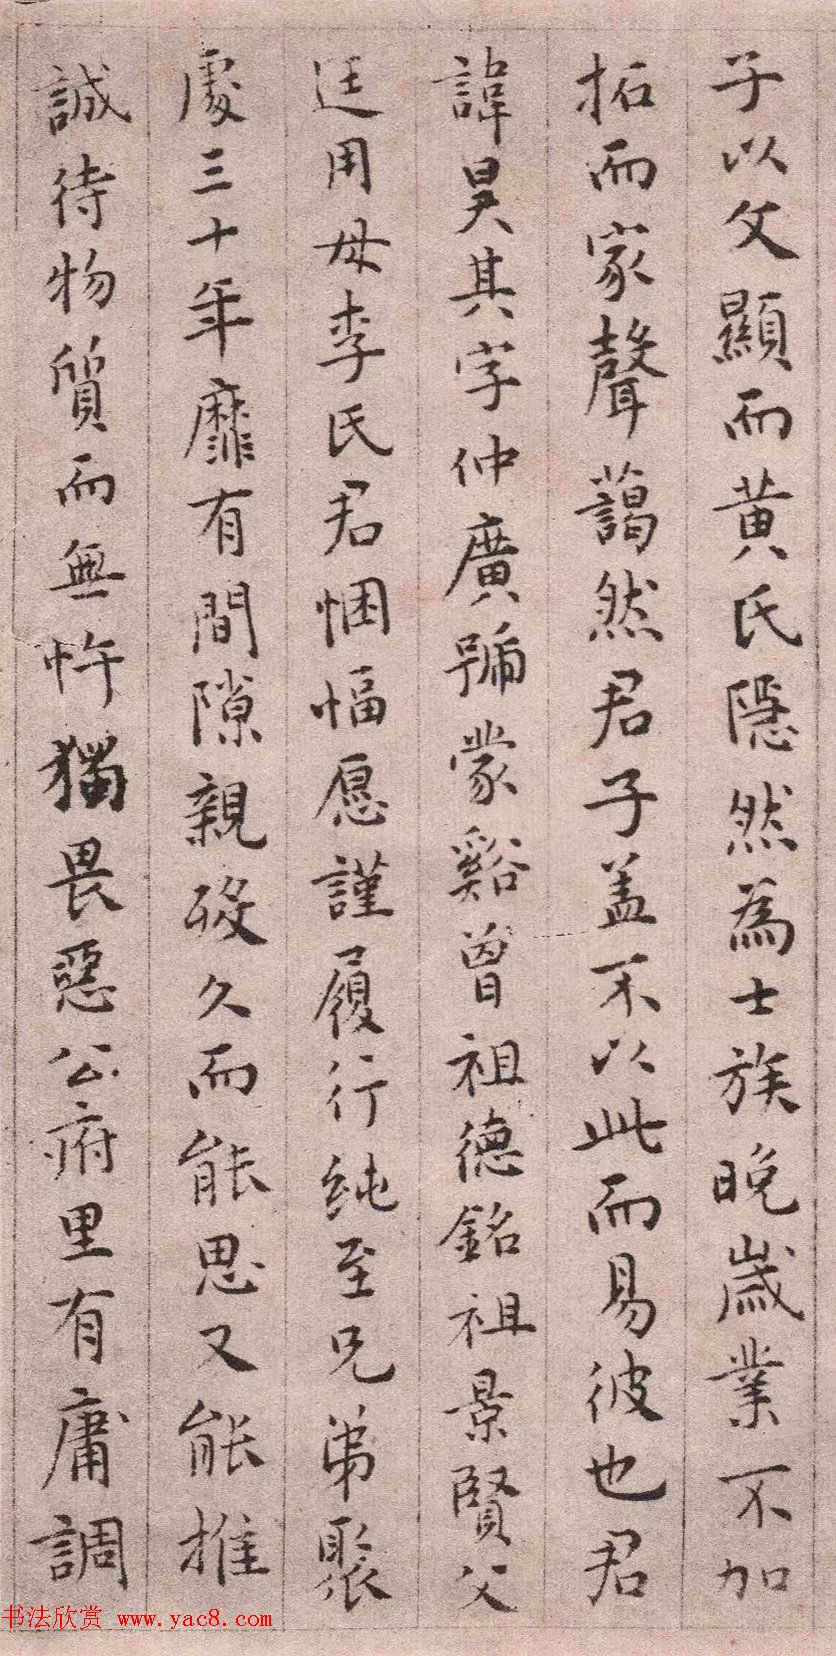 子以父顯而黄氏隠然為士族晚歲業不加
拓而家聲藹然君子盖不以此而易彼也君
諱昊其字仲廣號蒙谿曾祖德銘祖景賢父
廷用母李氏君悃愊愿謹履行纯至兄弟聚
處三十年靡有間隙親歿久而能思又能推
誠待物質而無忤獨畏惡公府里有庸調
书法欣赏 www.yac8.com